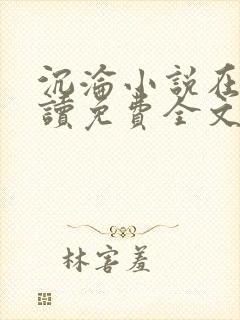 沉淪小說在
讀免費全文
林害羞